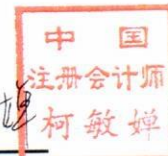 中国
注册会计师
柯敏婵
婵